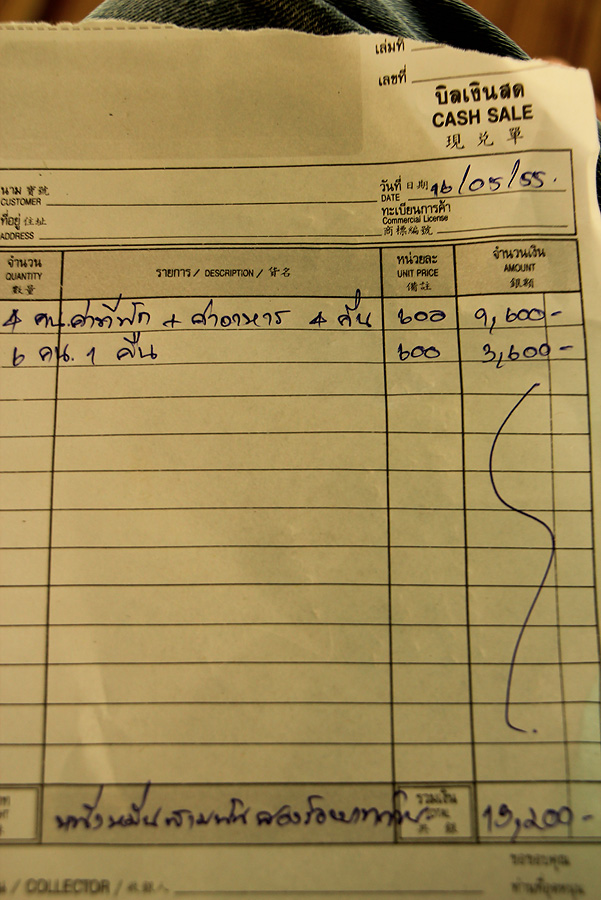 เล่มที่
เลขที่
บิลเงินสด
CASH SALE
現兌單
นาม 寶號
CUSTOMER
วันที่ 日期 16/05/55.
DATE
ที่อยู่ 住址
ADDRESS
ทะเบียนการค้า
Commercial License
商標編號
จำนวน
QUANTITY
數量
รายการ / DESCRIPTION / 貨名
หน่วยละ
UNIT PRICE
備註
จำนวนเงิน
AMOUNT
銀額
4 คน. ค่าที่พัก + ค่าอาหาร 4 คืน 600 9,600-
6 คน. 1 คืน 600 3,600-
หนึ่งหมื่นสามพันสองร้อยบาท
รวมเงิน
TOTAL
13,200-
ขอขอบคุณ
/ COLLECTOR /
ท่านที่อุดหนุน